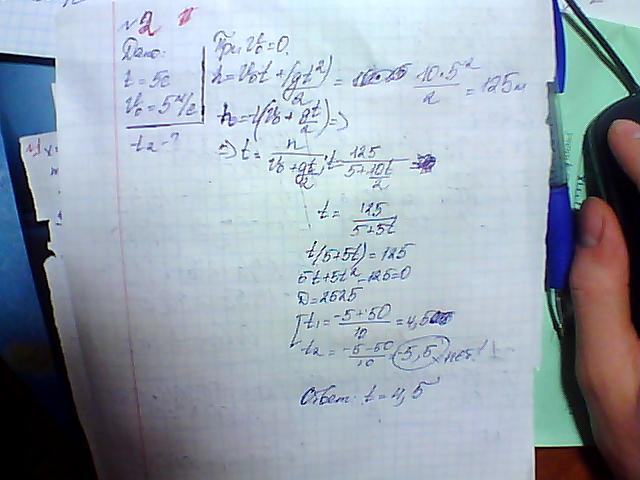 №2
Дано:
t = 5с
V₀ = 5 м/с
t₂ - ?
При V₀ = 0.
h = V₀t + (gt²)/2 = 10·5²/2 = 125 м
h = t(V₀ + gt/2) =>
=> t = h/(V₀ + gt/2); t = 125/(5 + 10t/2)
t = 125/(5+5t)
t(5+5t) = 125
5t + 5t² - 125 = 0
D = 2525
[t₁ = (-5+50)/10 = 4,5
t₂ = (-5-50)/10 = -5,5 нет!
Ответ: t = 4,5